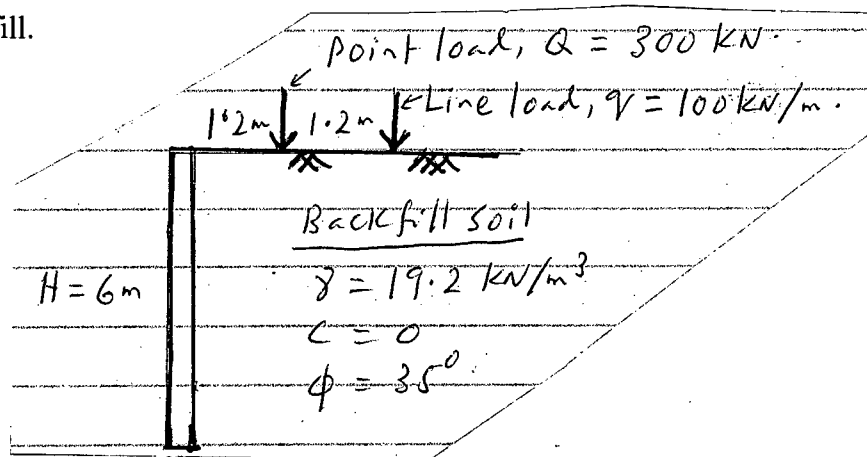 ill.
Point load, Q = 300 kN.
1.2m 1.2m Line load, q = 100 kN/m.
Backfill soil
H = 6m γ = 19.2 kN/m³
c = 0
φ = 35°